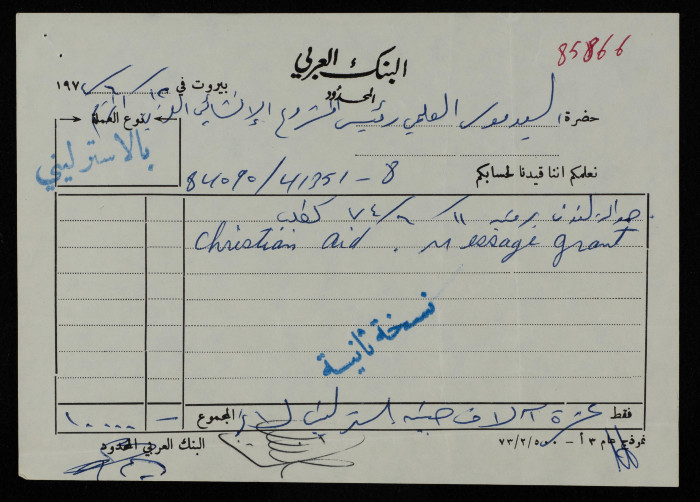 85866
البنك العربي
المحدود
بيروت في ١٩٧
حضرة السيد موسى العلمي رئيس المشروع الإنشائي العربي
نوع العملة
بالاسترليني
نعلمكم اننا قيدنا لحسابكم 84090/41351-8
حوالة لندن برقية ١١/٦/٧٤
Christian aid. Message grant
نسخة ثانية
فقط عشرة آلاف جنيه استرليني لا غير المجموع — ١٠٠٠٠
البنك العربي المحدود
نموذج عام ٣ أ – ٧٣/٢/٥٠٠